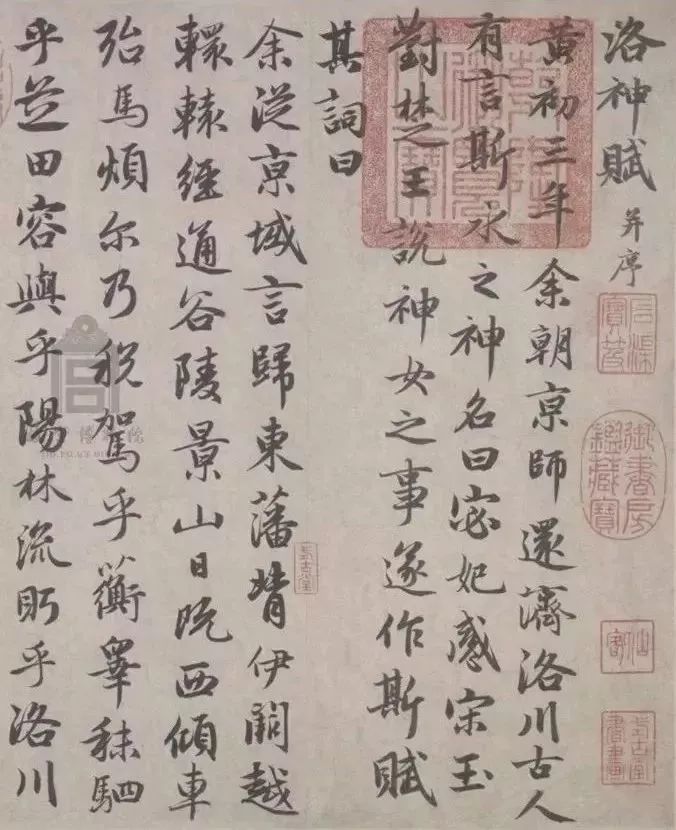 洛神賦 并序
黃初三年余朝京師還濟洛川古人
有言斯水之神名曰宓妃感宋玉
對楚王說神女之事遂作斯賦
其詞曰
余從京域言歸東藩背伊闕越
轘轅經通谷陵景山日既西傾車
殆馬煩尔乃稅駕乎蘅皋秣駟
乎芝田容與乎陽林流眄乎洛川
石渠寶笈
御書房鑑藏寶